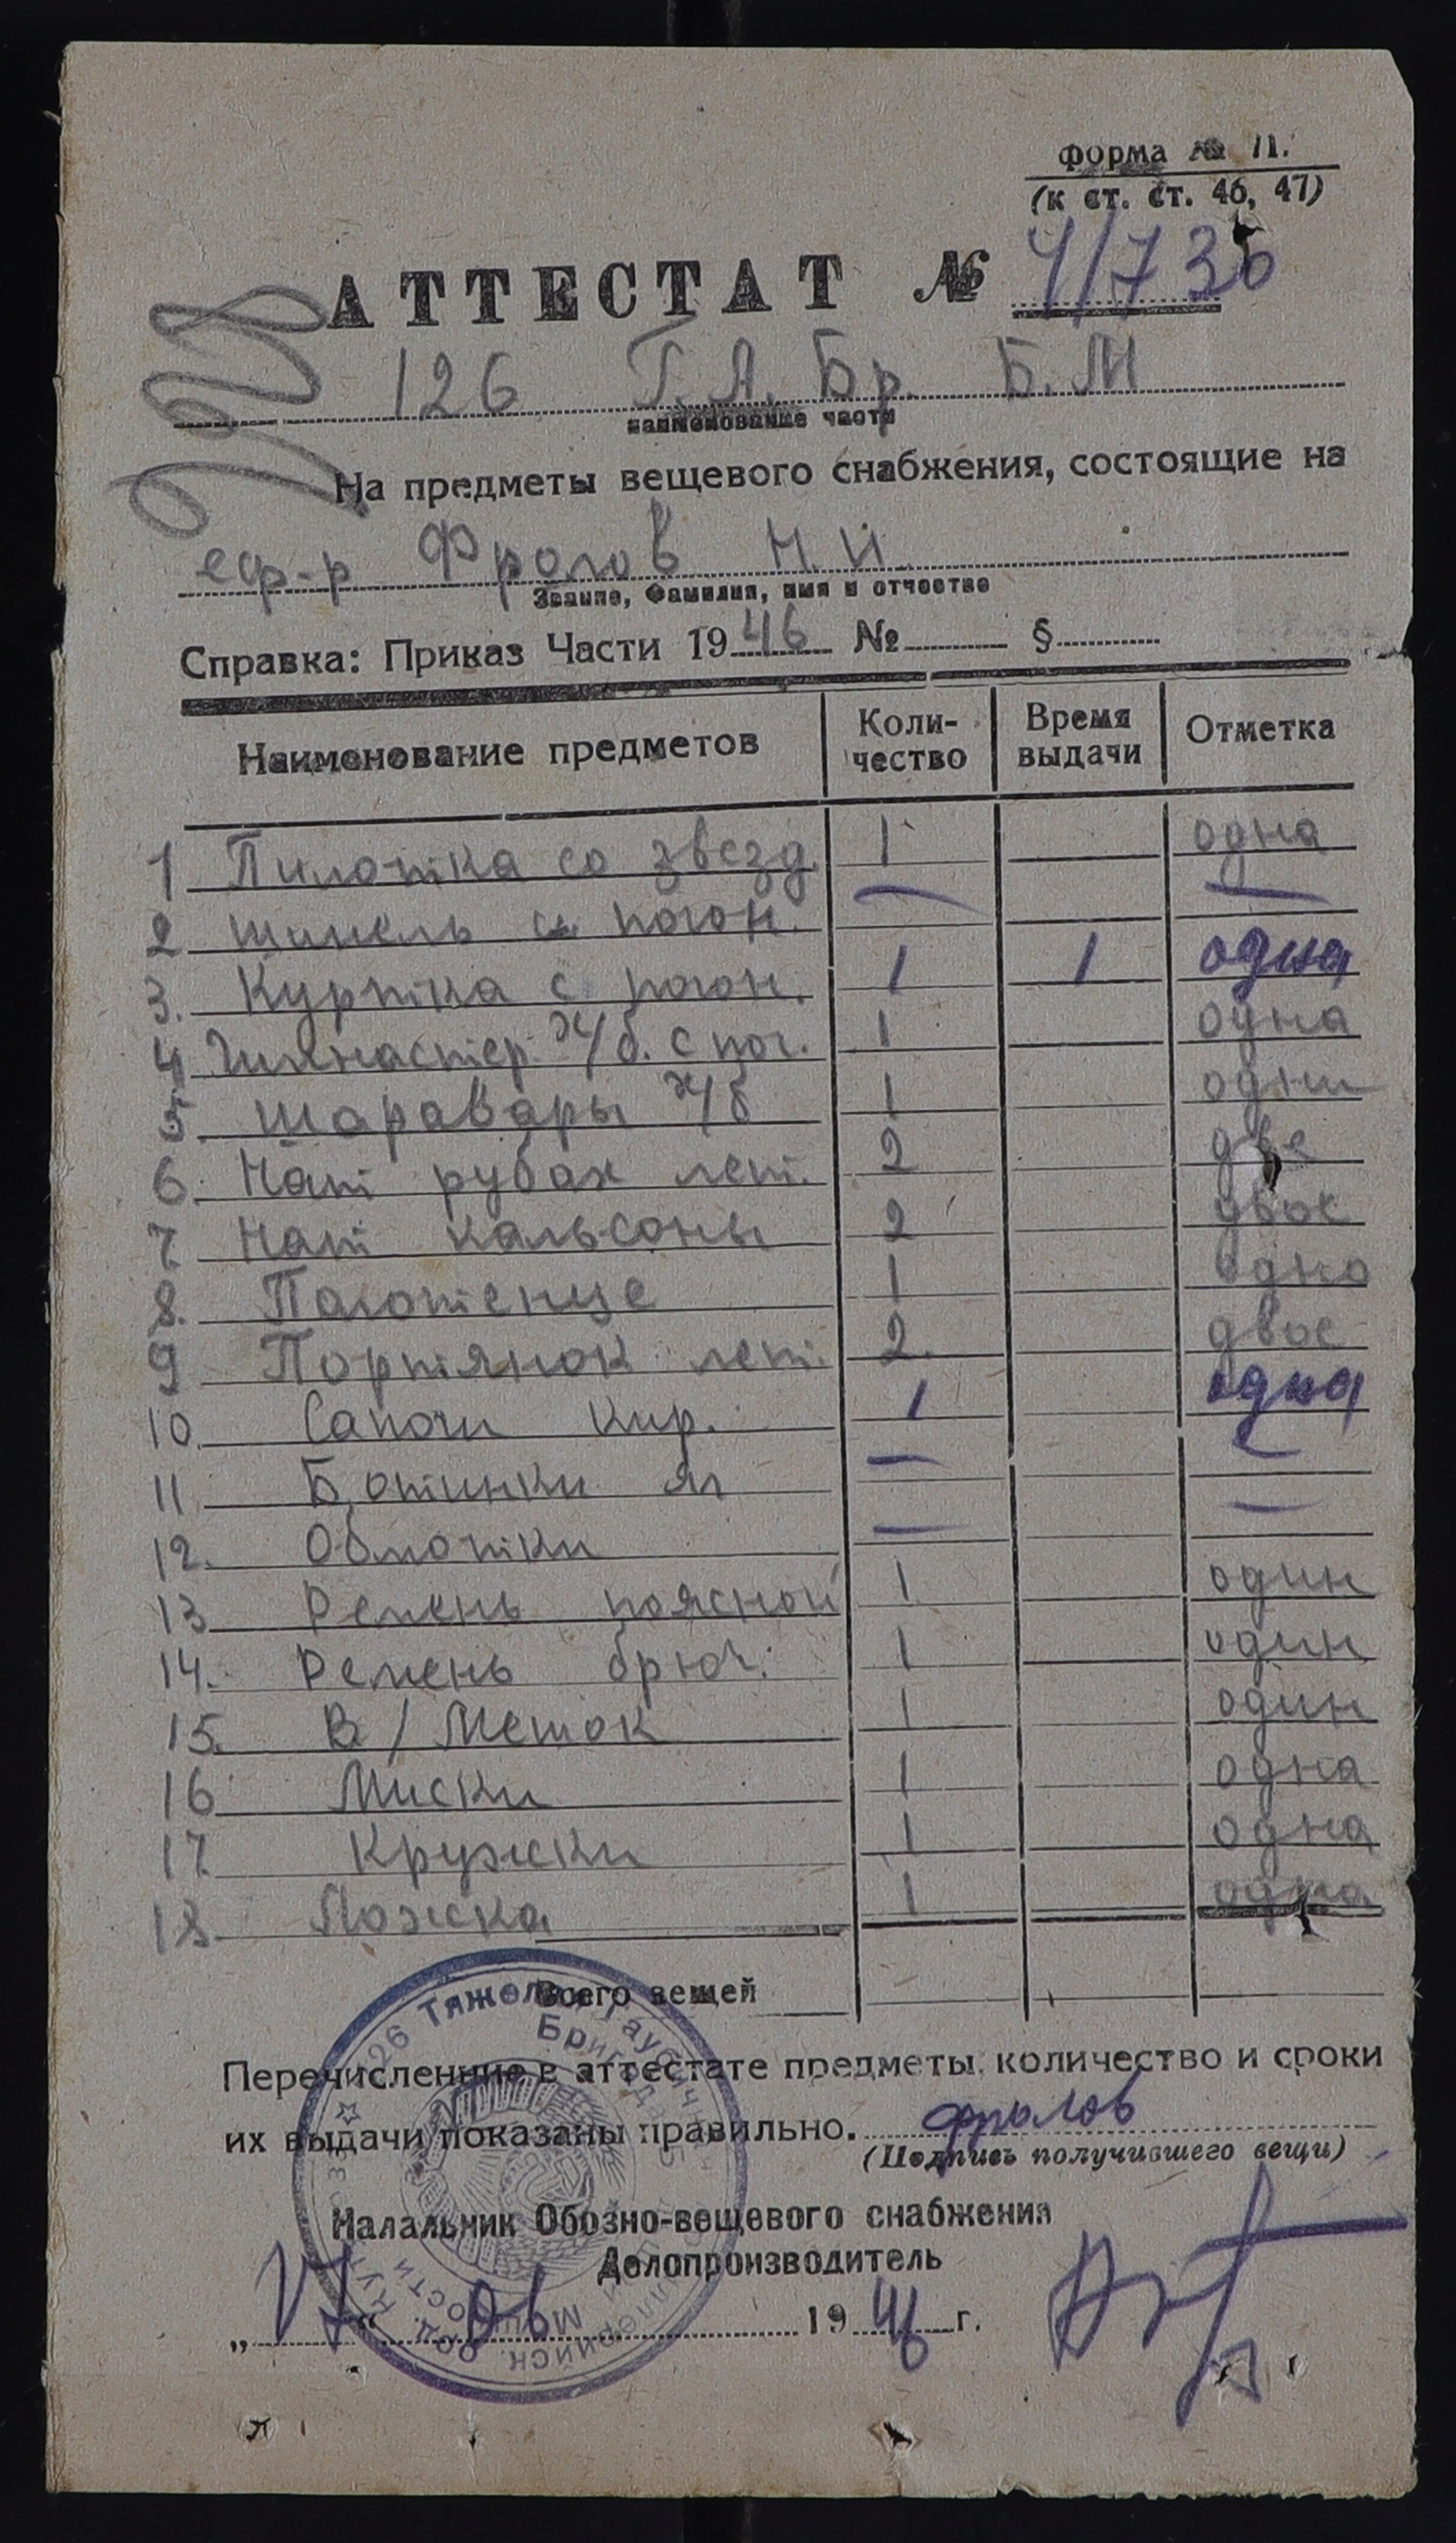 Форма № 11.
(к ст. ст. 46, 47)
АТТЕСТАТ № 4/730
126 Г.А. Бр. Б.М
наименование части
На предметы вещевого снабжения, состоящие на
еф-р Фролов Н.И.
Звание, Фамилия, имя и отчество
Справка: Приказ Части 1946 № §
Наименование предметов Коли-чество Время выдачи Отметка
1 Пилотка со звезд. 1 одна
2 Шинель с погон. — —
3. Куртка с погон. 1 1 одна
4 Гимнастер. х/б. с пог. 1 одна
5. Шаравары х/б 1 одни
6. Нат рубах лет. 2 две
7 Нат кальсоны 2 двое
8. Полотенце 1 одно
9 Портянок лет. 2. двое
10. Сапоги кир. 1 одна
11. Ботинки — —
12. Обмотки — —
13 Ремень поясной 1 один
14. Ремень брюч. 1 один
15. В/Мешок 1 один
16 Миски 1 одна
17 Кружки 1 одна
18 Ложка 1 одна
Всего вещей
Перечисленные в аттестате предметы, количество и сроки
их выдачи показаны правильно. Фролов
(Подпись получившего вещи)
Малальник Обозно-вещевого снабжения
Делопроизводитель
„17“ 06 1946 г.
126 Тяжелая Гаубичн
Бригада